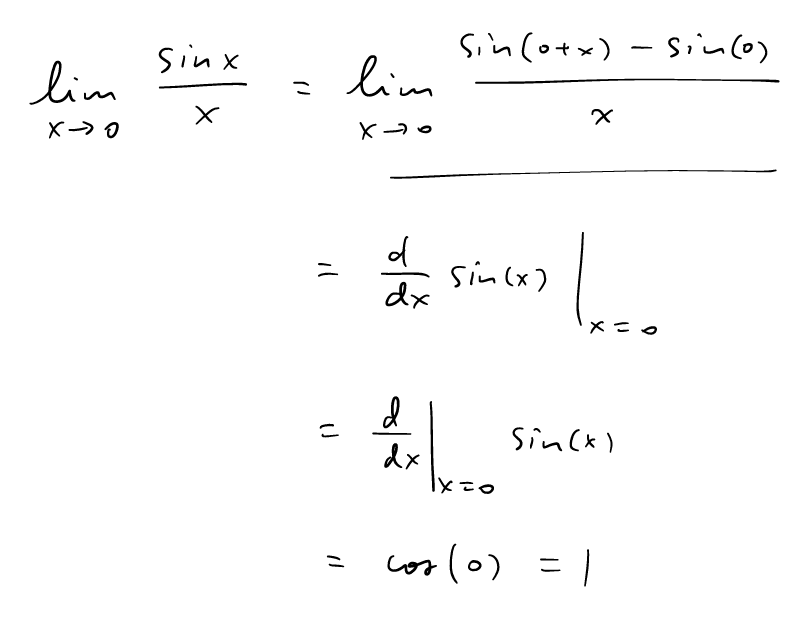 lim x→0 sin x / x = lim x→0 (sin(0+x) − sin(0)) / x
= d/dx sin(x) |x=0
= d/dx |x=0 sin(x)
= cos(0) = 1